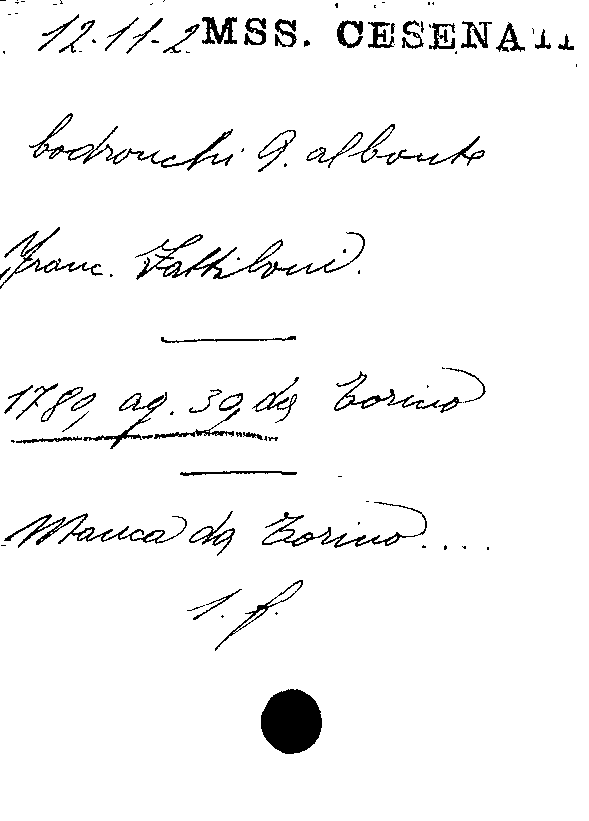 12-11-2 MSS. CESENATI
Codronchi G. al conte
Franc. Fattiboni.
1789, ag. 30, da Torino
Manca da Torino....
1. f.